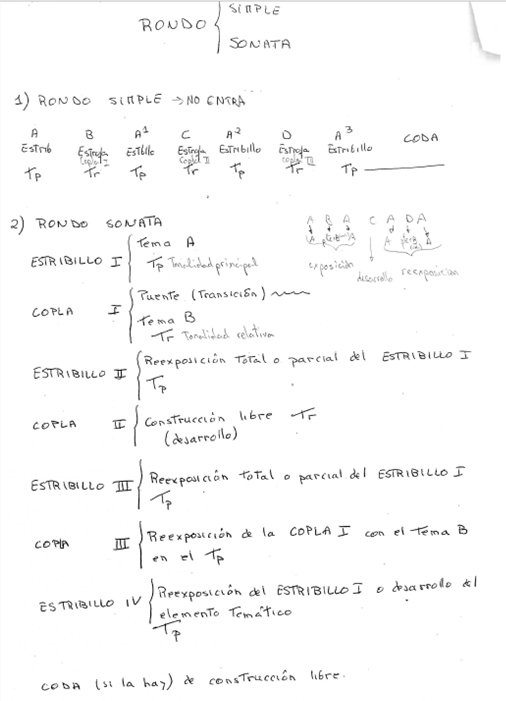 RONDO
SIMPLE
SONATA
1) RONDO SIMPLE → NO ENTRA
A B A¹ C A² D A³ CODA
Estrib Estrofa Estbllo Estrofa Estribillo Estrofa Estribillo
Copla I Copla II Copla III
Tp Tr Tp Tr Tp Tr Tp
2) RONDO SONATA
A B A C A D A
exposición desarrollo reexposición
ESTRIBILLO I
Tema A
Tp Tonalidad principal
COPLA I
Puente (Transición)
Tema B
Tr Tonalidad relativa
ESTRIBILLO II
Reexposición Total o parcial del ESTRIBILLO I
Tp
COPLA II
Construcción libre Tr
(desarrollo)
ESTRIBILLO III
Reexposición Total o parcial del ESTRIBILLO I
Tp
COPLA III
Reexposición de la COPLA I con el Tema B
en el Tp
ESTRIBILLO IV
Reexposición del ESTRIBILLO I o desarrollo del
elemento Temático
Tp
CODA (si la hay) de construcción libre.